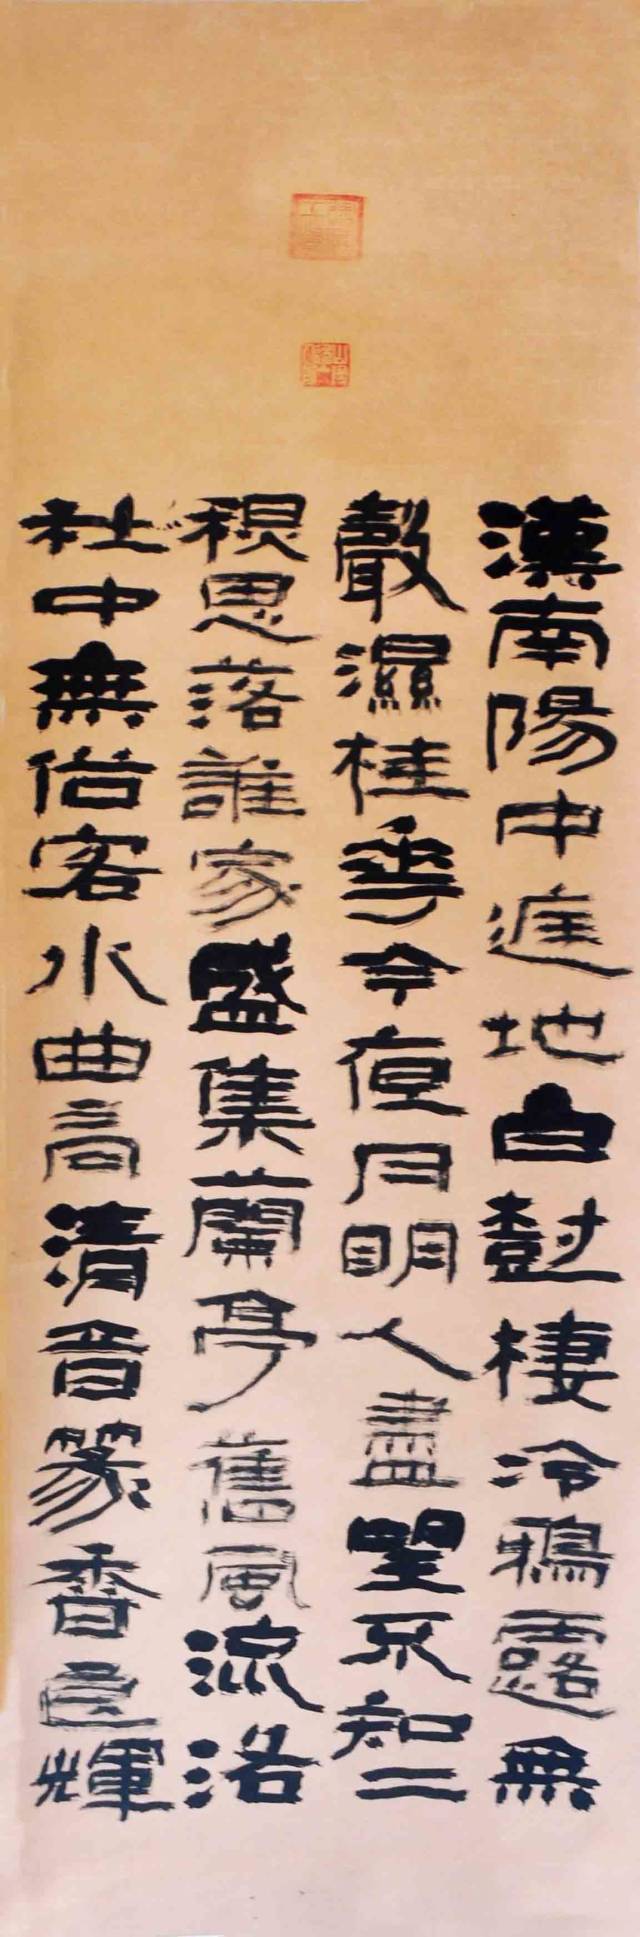 漢南陽中庭地白尌棲冷鴉露無
聲濕桂華今夜月明人盡望不知二
思落誰家盛集蘭亭舊風流洛
社中無俗客水曲高清音篆香輝